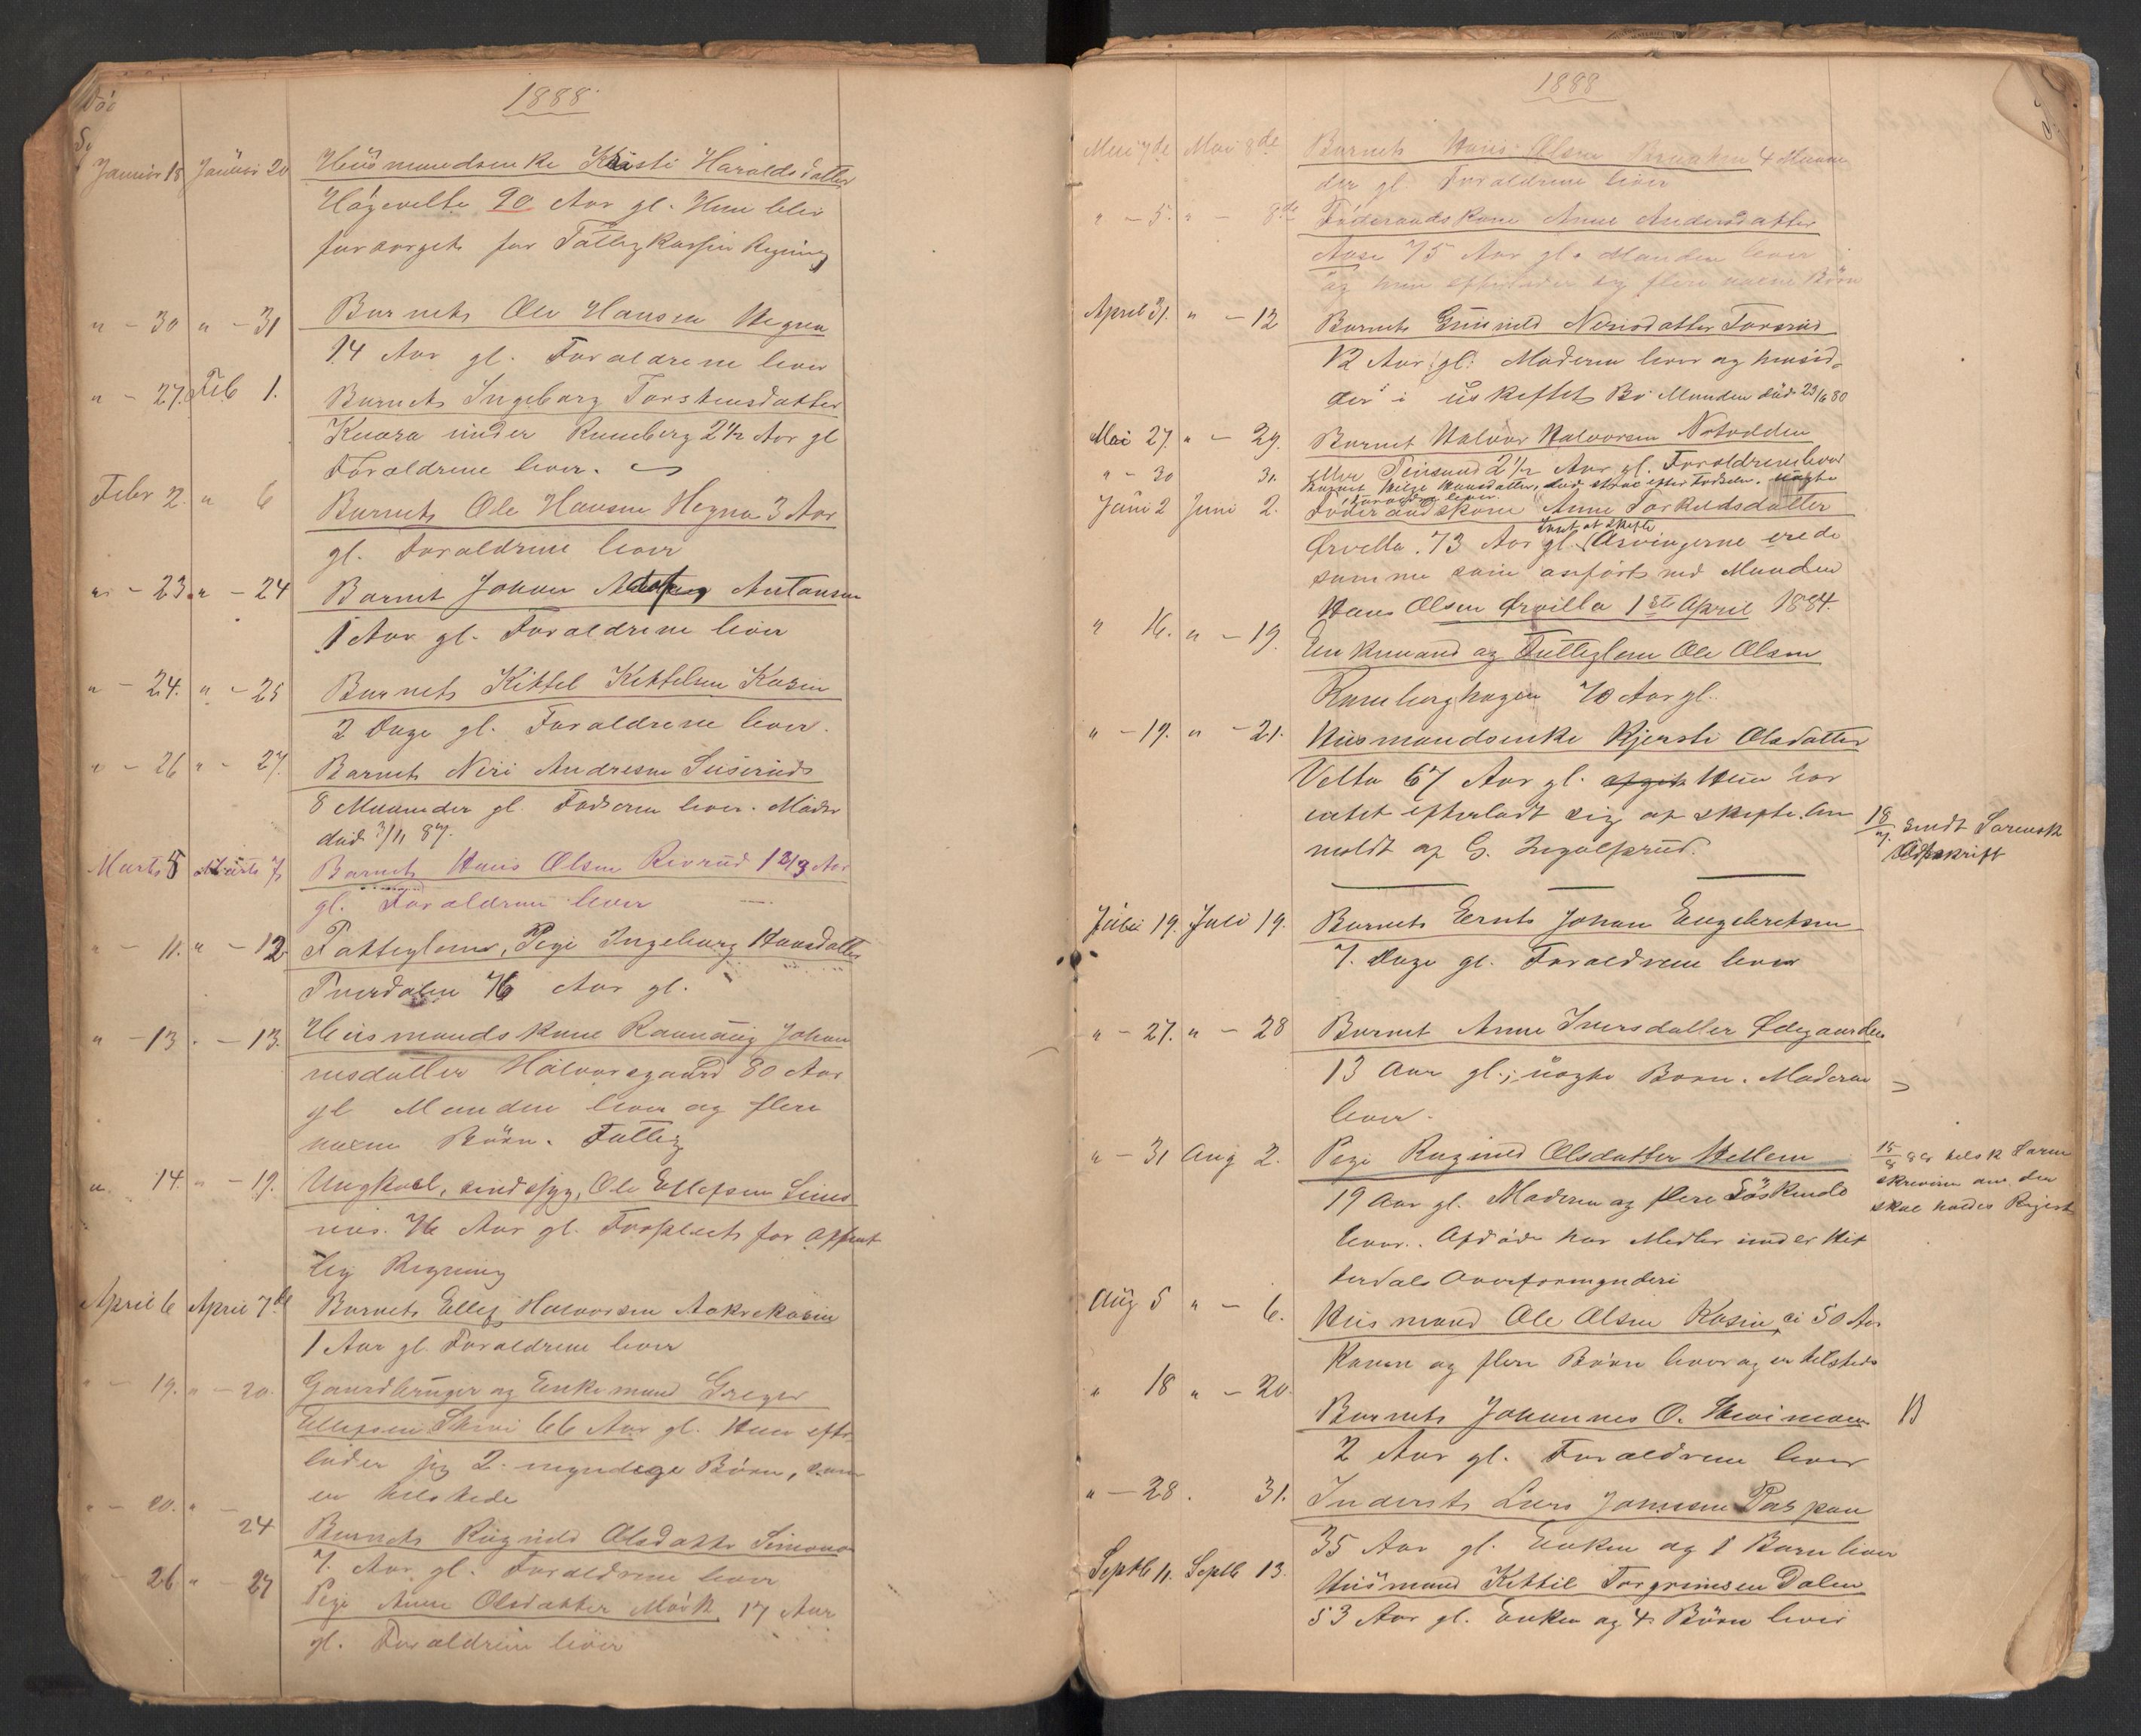 1888
Januar 18 Januar 20 Huusmandsenke Kristi Haraldsdatter
Høgevelte 90 Aar gl. Hun blev
forsørget for Fattigkassens Regning
" - 30 " - 31 Barnet Ole Hansen Hegna
14 Aar gl. Foraldrene lever
" - 27. Feb 1. Barnet Ingeborg Torstensdatter
Knara under Rumberg 2 1/2 Aar gl
Foraldrene lever.
Febr 2. " 6 Barnet Ole Hansen Hegna 3 Aar
gl. Foraldrene lever
" - 23. " - 24 Barnet Johan Antonsen
1 Aar gl. Foraldrene lever
" - 24. " - 25 Barnet Kittel Kittelsen Kasin
2 Dage gl. Foraldrene lever.
" - 26 " - 27. Barnet Neri Andresen Suserud
8 Maaneder gl. Faderen lever. Moder
død 3/11 87.
Marts 5 Marts 7 Barnet Hans Olsen Revrud 1 2/3 Aar
gl. Foraldrene lever
" - 11. " - 12 Fattiglem, Pige Ingeborg Hansdatter
Tverdalen 76 Aar gl.
" - 13 . - 13. Huusmandskone Rannaug Johan
nesdatter Halvorsgaard 80 Aar
gl Manden lever og flere
voxne Børn. Fattig
" 14. " - 19. Ungkarl, sindssyg, Ole Ellefsen Sem
76 Aar gl. Forpleiet for Offent
lig Regning
April 6 April 7de Barnet Ellef Halvorsen Aakrekasin
1 Aar gl. Foraldrene lever
" - 19. " - 20. Gaardbruger og Enkemand Greger
Ellefsen Skovi 66 Aar gl. Han efter
lader sig 2. myndige Børn, som
er tilstede
" - 20. " - 24 Barnet Ragnild Olsdatter Simon
7. Aar gl. Foraldrene lever
" - 26 " - 27 Pige Anne Olsdatter Mørk 17 Aar
gl. Foraldrene lever
1888
Mai 7de Mai 8de Barnet Hans Olsen 4 Maane
der gl. Foraldrene lever
" - 5. " - 8de Føderaadskone Anne Andersdatter
Aase 75 Aar gl. Manden lever
og hun efterlader sig flere voxne Børn
April 31. " - 12 Barnet Gunild Nerisdatter Torsrud
12 Aar gl. Moderen lever og hensid-
der i uskiftet Bo Manden død 23/6 80
Mai 27. " - 29. Barnet Halvor Halvorsen Notodden
eller Tinsund 2 1/2 Aar gl. Foraldrene lever
" - 30 31. Barnet Helge Hansdatter, død strax efter Fødselen. uægte
Foraldre lever.
Juni 2 Juni 2. Føderaadskone Anne Torkildsdatter
Ørvella. 73 Aar gl. Intet at skifte (Arvingerne ere de
samme som anført ved Manden
Hans Olsen Ørvella 1ste April 1884.
" 16. " - 19. Enkemand og Fattiglem Ole Olsen
Rumberghagen 70 Aar gl.
" - 19. " - 21. Huusmandsenke Kjersti Olsdatter
Velta 67 Aar gl. Hun har
intet efterladt sig at skifte. An
meldt af G. Ingolfsrud.
18/7. sendt Sorensk
Adskrift
Juli 19. Juli 19. Barnet Ernts Johan Engebretsen
7. Dage gl. Foraldrene lever
" - 27. " - 28 Barnet Anne Iversdatter Ødegaarden
13 Aar gl.; uægte Barn. Moderen
lever.
" - 31 Aug 2. Pige Ragnild Olsdatter Hellem
19 Aar gl. Moderen og flere Søskende
lever. Afdøde har Midler under Hit
terdals Overformynderi
15/8 88 tilsk Soren
skriveren om der
skal holdes Registr
Aug 5 " - 6. Huusmand Ole Olsen Kasin, ci 50 Aar
Konen og flere Børn lever og er tilstede
" 18 " - 20. Barnet Johannes O. Heimoen
2 Aar gl. Foraldrene lever
" - 28 . 31. Inderst Lars Johnsen Paspan
35 Aar gl. Enken og 1 Barn lever
Septb 11. Septb 13. Huusmand Kittil Torgrimsen Dalen
53 Aar gl. Enken og 4 Børn lever